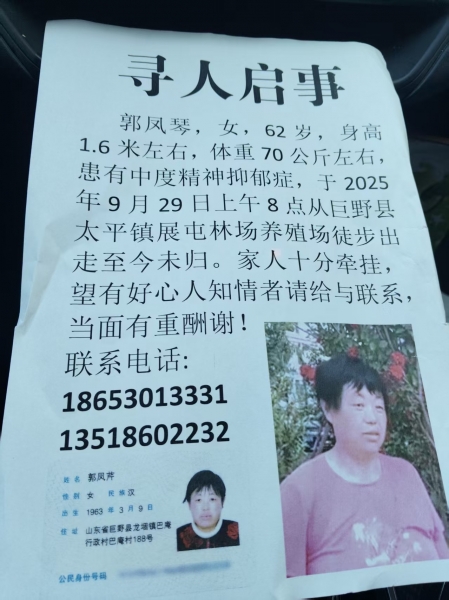 寻人启事
郭凤琴，女，62 岁，身高
1.6 米左右，体重 70 公斤左右，
患有中度精神抑郁症，于 2025
年 9 月 29 日上午 8 点从巨野县
太平镇展屯林场养殖场徒步出
走至今未归。家人十分牵挂，
望有好心人知情者请给与联系，
当面有重酬谢！
联系电话:
18653013331
13518602232
姓名 郭凤芹
性别 女 民族 汉
出生 1963 年 3 月 9 日
住址 山东省巨野县龙堌镇巴庵
行政村巴庵村188号
公民身份号码